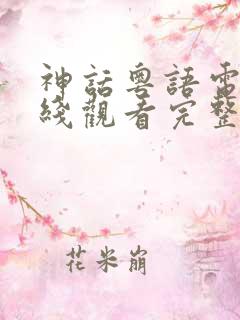 神話粵語電
綫觀看完整
花米崩